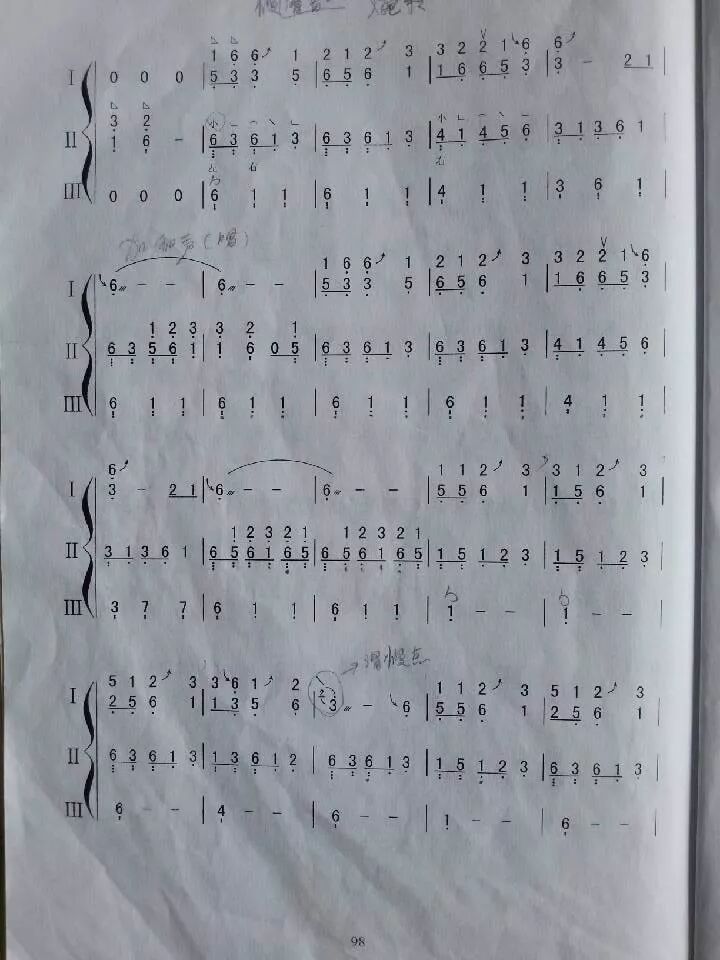 1 6 6 1 | 2 1 2 3 | 3 2 2 1 6 | 6
I 0 0 0 | 5 3 3 5 | 6 5 6 1 | 1 6 6 5 3 | 3 – 2 1
3 2
II 1 6 – | 6 3 6 1 3 | 6 3 6 1 3 | 4 1 4 5 6 | 3 1 3 6 1
III 0 0 0 | 6 1 1 | 6 1 1 | 4 1 1 | 3 6 1
1 6 6 1 | 2 1 2 3 | 3 2 2 1 6
I 6 – – | 6 – – | 5 3 3 5 | 6 5 6 1 | 1 6 6 5 3
1 2 3 | 3 2 1
II 6 3 5 6 1 | 1 6 0 5 | 6 3 6 1 3 | 6 3 6 1 3 | 4 1 4 5 6
III 6 1 1 | 6 1 1 | 6 1 1 | 6 1 1 | 4 1 1
6 | 1 1 2 3 | 3 1 2 3
I 3 – 2 1 | 6 – – | 6 – – | 5 5 6 1 | 1 5 6 1
1 2 3 2 1 | 1 2 3 2 1
II 3 1 3 6 1 | 6 5 6 1 6 5 | 6 5 6 1 6 5 | 1 5 1 2 3 | 1 5 1 2 3
III 3 7 7 | 6 1 1 | 6 1 1 | 1 – – | 1 – –
5 1 2 3 | 3 6 1 2 | 1 1 2 3 | 5 1 2 3
I 2 5 6 1 | 1 3 5 6 | 2 3 – 6 | 5 5 6 1 | 2 5 6 1
II 6 3 6 1 3 | 1 3 6 1 2 | 6 3 6 1 3 | 1 5 1 2 3 | 6 3 6 1 3
III 6 – – | 4 – – | 6 – – | 1 – – | 6 – –
98